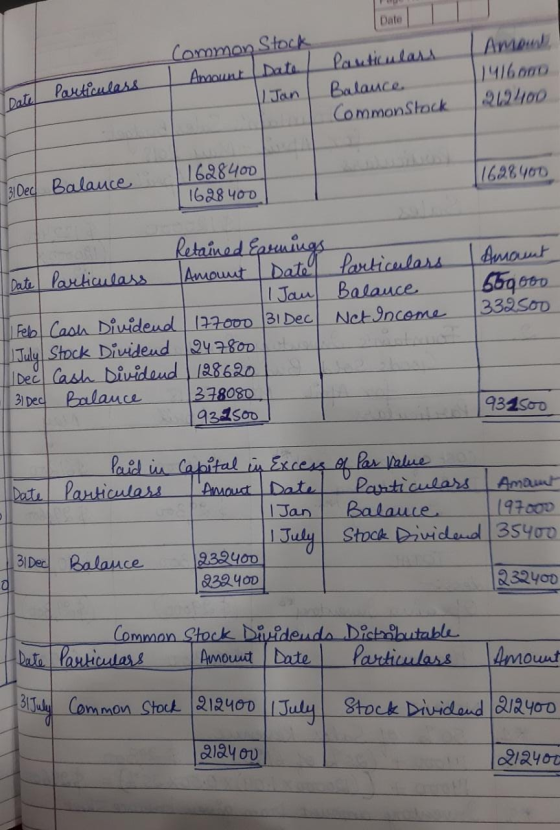 Date
Common Stock
Date Particulars Amount Date Particulars Amount
1 Jan Balance 1416000
Common Stock 212400
31 Dec Balance 1628400 1628400
1628400
Retained Earnings
Date Particulars Amount Date Particulars Amount
1 Jan Balance 559000
1 Feb Cash Dividend 177000 31 Dec Net Income 332500
1 July Stock Dividend 247800
1 Dec Cash Dividend 128620
31 Dec Balance 378080
931500 931500
Paid in Capital in Excess of Par Value
Date Particulars Amount Date Particulars Amount
1 Jan Balance 197000
1 July Stock Dividend 35400
31 Dec Balance 232400
232400 232400
Common Stock Dividends Distributable
Date Particulars Amount Date Particulars Amount
31 July Common Stock 212400 1 July Stock Dividend 212400
212400 212400